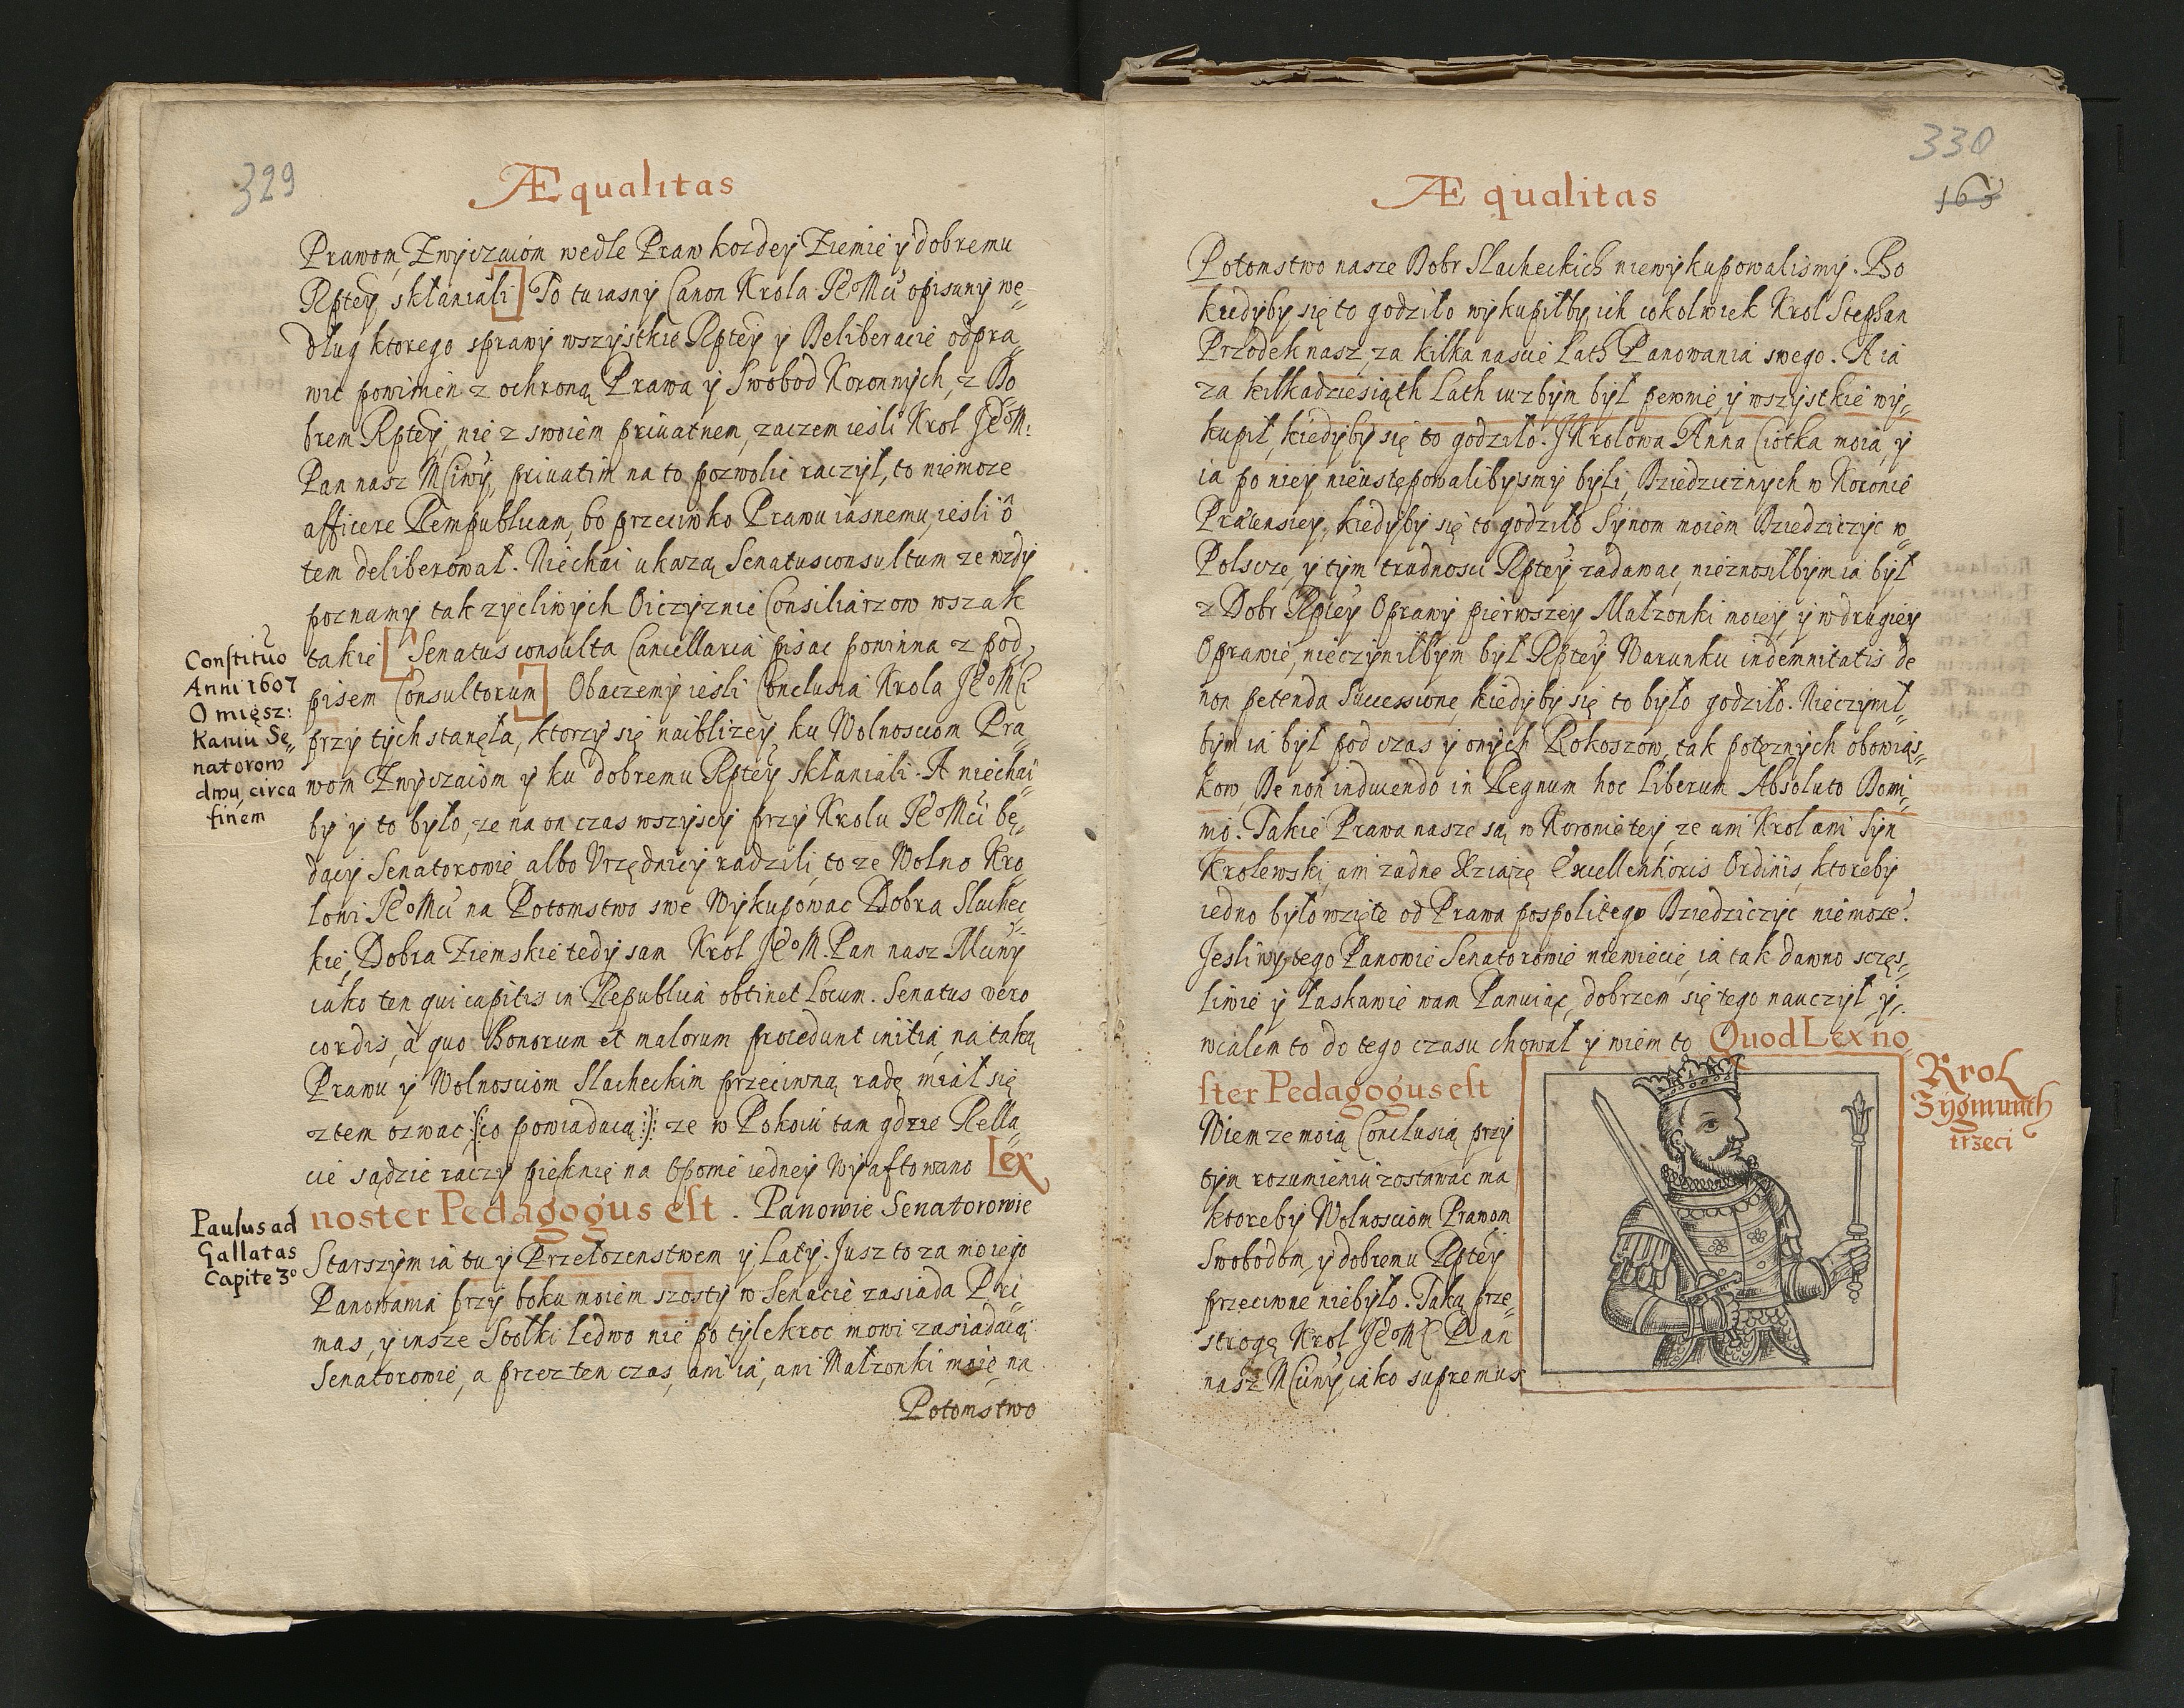 329
Æqualitas
Prawom, Zwyczaiom wedle Praw kozdey Ziemie y dobremu
Rptey skłaniali] To tu iasny Canon Krola JEoMći opisany we=
dług ktorego sprawy wszystkie Rptey y Deliberacie odpra=
wic powinien z ochroną Prawa y Swobod Koronnych, z Do
brem Rptey, nie z swoiem priuatnem, zaczem iesli Krol JEoM:
Pan nasz Mciwy, priuatim na to pozwolic raczył, to niemoze
afficere Rempublicam, bo przeciwko Prawu iasnemu, iesli o
tem deliberował. Niechai ukazą Senatusconsultum ze wzdy
poznamy tak zycliwych Oiczyznie Consiliarzow wszak
takie [Senatusconsulta Cancellaria pisac powinna z pod
pisem Consultorum] Obaczemy iesli Conclusia Krola JEoMći
przy tych stanęła, ktorzy się naiblizey ku Wolnosciom Pra=
wom Zwyczaiom y ku dobremu Rptey skłaniali. A niechai
by y to było, ze na on czas wszyscy przy Krolu JEoMći bę=
dący Senatorowie albo Vrzędnicy radzili, to ze Wolno Kro=
lowi JEoMći na Potomstwo swe Wykupowac Dobra Slachec=
kie, Dobra Ziemskie tedy sam Krol JEoM. Pan nasz Mciwy
iako ten qui capitis in Republica obtinet Locum. Senatus vero
cordis, à quo Bonorum et malorum procedunt initia, na taką
Prawu y Wolnosciom Slacheckim przeciwną radę miał się
z tem ozwac :(co powiadaią): ze w Pokoiu tam gdzie Rella=
cie sądzic raczy pięknie na Oponie iedney Wyaftowano Lex
noster Pedagogus est. Panowie Senatorowie
Starszym ia tu y Przełozenstwem y Laty. Jusz to za moiego
Panowania przy boku moiem szosty w Senacie zasiada Pri=
mas, y insze Stołki ledwo nie po tylekroc nowi zasiadaią
Senatorowie, a przez ten czas, ani ia, ani Małzonki moie na
Potomstwo
Constitũo
Anni 1607
O mięsz:
kaniu Se=
natorow
dwu, circa
finem
Paulus ad
Gallatas
Capite 3o
330
163
Æqualitas
Potomstwo nasze Dobr Slacheckich niewykupowalismy. Bo
kiedyby się to godziło wykupiłby ich cokolwiek Krol Stephan
Przodek nasz, za kilkanascie Lath Panowania swego. A ia
za kilkadziesiąth Lath iuzbym był pewnie, y wszystkie wy=
kupił, kiedyby się to godziło. J Krolowa Anna Ciotka moia, y
ia po niey nieustępowalibysmy byli, Dziedzicznych w Koronie
Praetensiey, kiedyby się to godziło Synom moiem Dziedziczyc w
Polscze, y tym trudnosci Rptey zadawac, nieznosiłbym ia był
z Dobr Rptey Oprawy pierwszey Małzonki moiey, y w drugiey
Oprawie, nieczyniłbym był Rptey Warunku indemnitatis de
non petenda Successione, kiedyby się to było godziło. Nieczynił=
bym ia był pod czas y onych Rokoszow, tak potęznych obowiąs=
kow, De non inducendo in Regnum hoc Liberum Absoluto Domi=
nio. Takie Prawa nasze są w Koronie tey, ze ani Krol ani Syn
Krolewski, ani zadne Xziąze Excellentioris Ordinis, ktoreby
iedno było wzięte od Prawa pospolitego Dziedziczyc niemoze.
Jesli wy tego Panowie Senatorowie niewiecie, ia tak dawno szczęs=
liwie y Łaskawie wam Panuiąc, dobrzem się tego nauczył y
wcalem to do tego czasu chował y wiem to Quod Lex no
ster Pedagogus est
Wiem ze moią Conclusią przy
tym rozumieniu zostawac ma
ktoreby Wolnosciom Prawom
Swobodom, y dobremu Rptey
przeciwne niebyło. Taką prze=
strogę Krol JEoMć Pan
nasz Mciwy, iako supremus
Krol
Zygmunth
trzeci